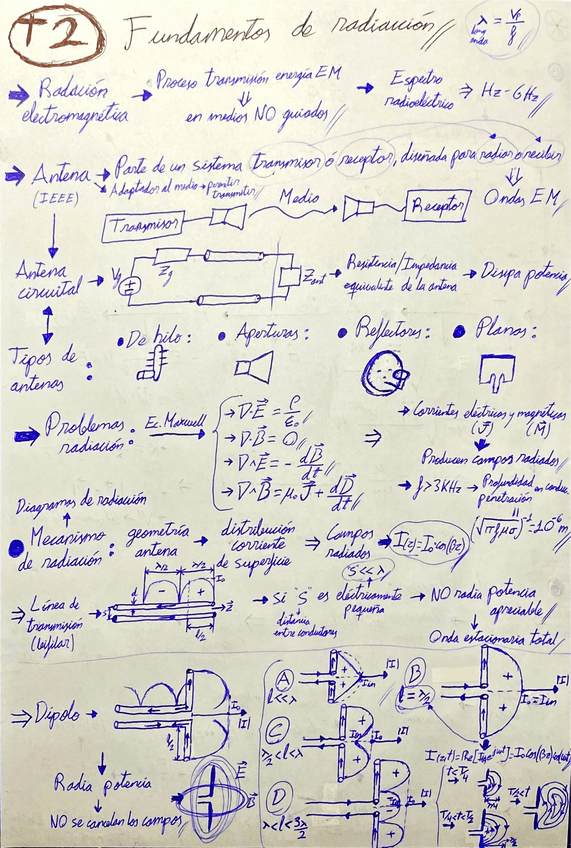 T2
Fundamentos de radiación
λ = Vp/f
long onda
Radación electromagnética → Proceso transmisión energía EM
⇓
en medios NO guiados
→ Espectro radioeléctrico ⇒ Hz-GHz
Antena (IEEE) → Parte de un sistema transmisor ó receptor, diseñada para radiar o recibir
⇓
Ondas EM
Adaptador al medio → permitir transmitir
Transmisor
Medio
Receptor
Antena circuital → Vg
Zg
Zant → Resistencia/Impedancia equivalente de la antena → Disipa potencia
Tipos de antenas:
• De hilo:
• Aperturas:
• Reflectores:
• Planas:
Problemas radiación: Ec. Maxwell
→ ∇·E = ρ/ε₀
→ ∇·B = 0
→ ∇∧E = - dB/dt
→ ∇∧B = μ₀J + dD/dt
⇒
→ Corrientes eléctricas y magnéticas
(J) (M)
Producen campos radiados
→ f>3KHz → Profundidad en conduc. penetración
(√πfμσ)⁻¹ = 10⁻⁶ m
Diagramas de radiación
• Mecanismo de radiación: geometría antena → distribución corriente de superficie ⇒ Campos radiados
I(z) = I₀·cos(βz)
⇒ Línea de transmisión (bifilar)
λ/2 λ/2
I₀
d
s
z
l/2
S<<λ
→ Si "S" es eléctricamente pequeña → NO radia potencia apreciable
distancia entre conductores
Onda estacionaria total
⇒ Dipolo →
I₀
|I|
l/2
Radia potencia
NO se cancelan los campos
E
B
A
l<<λ
|I|
Iin
B
l = λ/2
|I|
I₀=Iin
C
λ/2<l<λ
Iin I₀ |I|
D
λ<l<3λ/2
I₀ |I|
I(z,t)=Re[I₀e^jωt]=I₀cos(βz)cos(ωt)
t<T/4
T/4<t<T/2
T/2<t